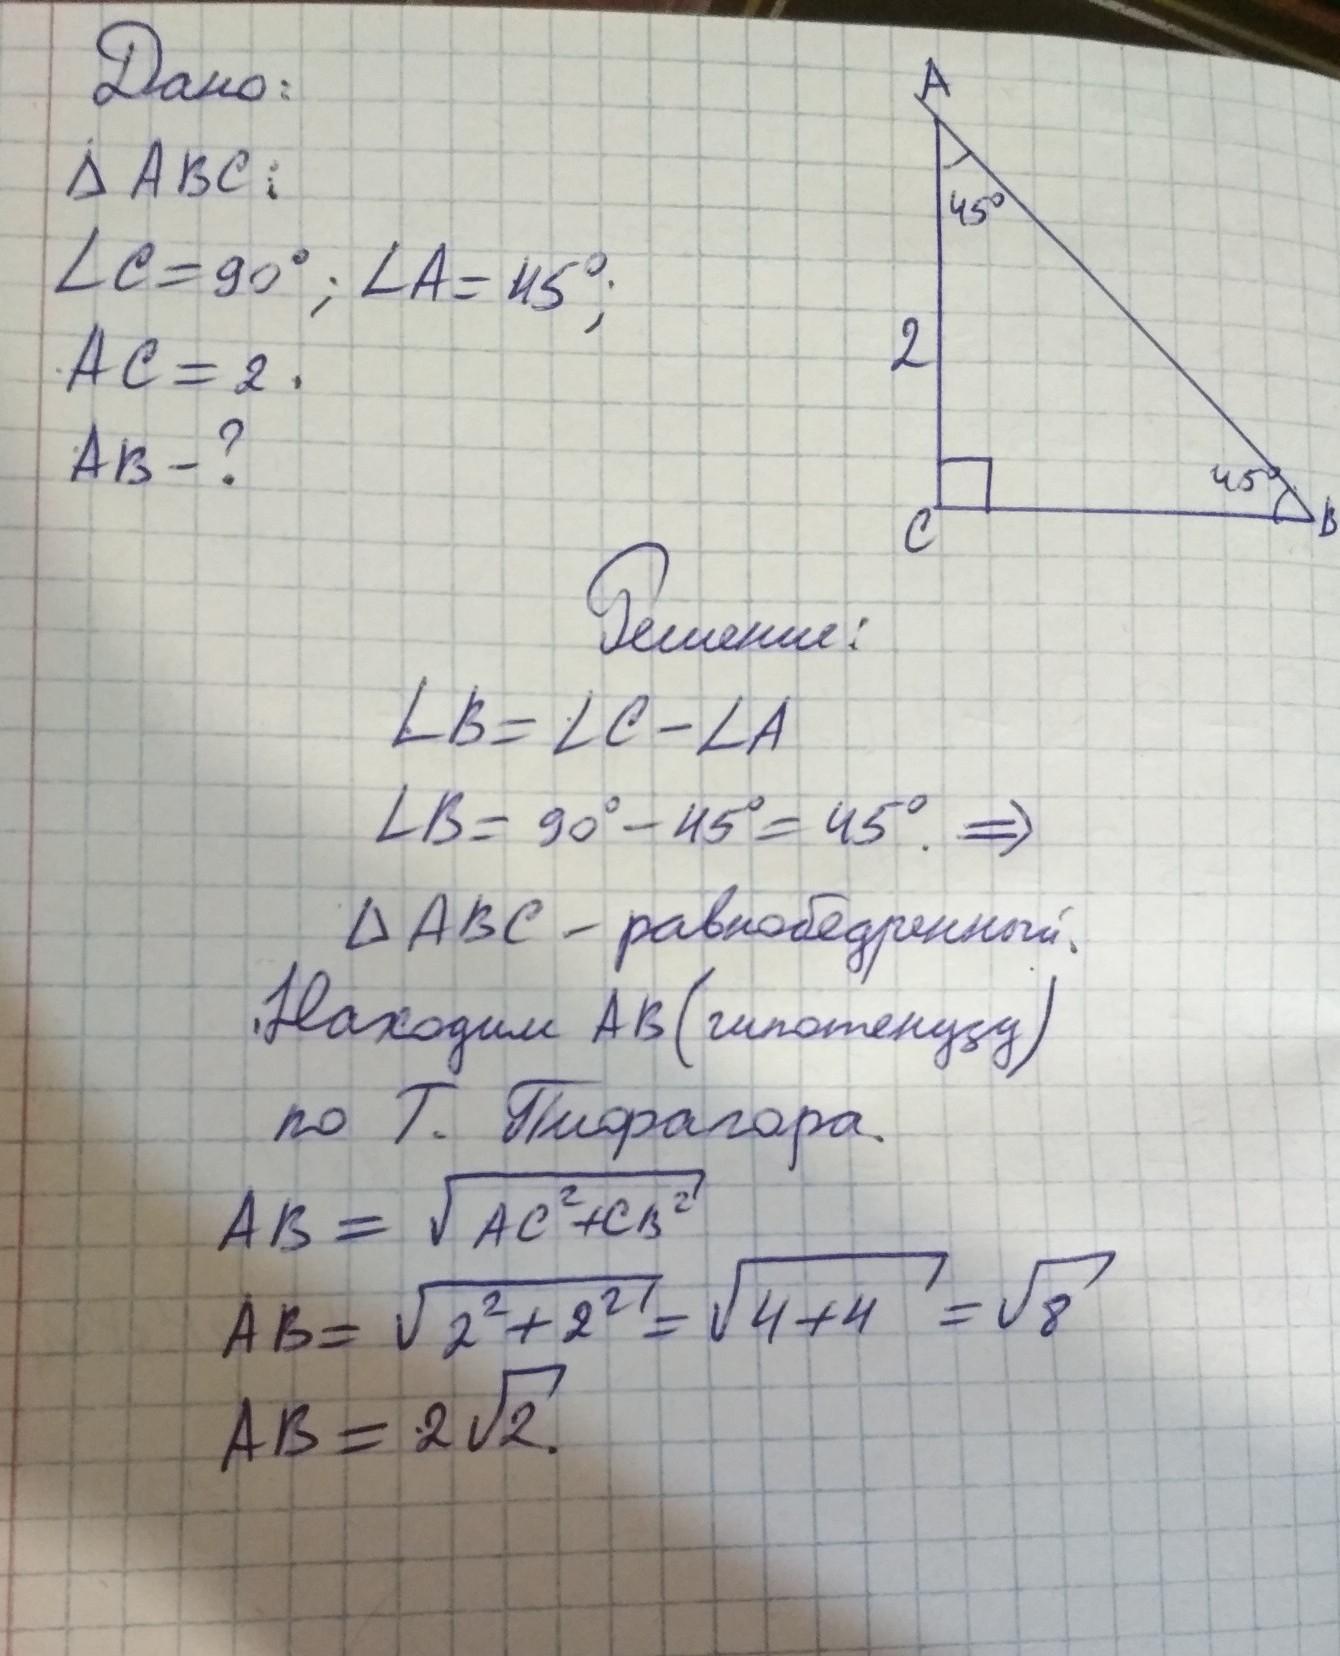 Дано:
Δ ABC:
∠C = 90°; ∠A = 45°;
AC = 2.
AB - ?
A
45°
2
45°
C
B
Решение:
∠B = ∠C - ∠A
∠B = 90° - 45° = 45°. ⇒
Δ ABC - равнобедренный.
Находим AB (гипотенузу)
по Т. Пифагора.
AB = √AC²+CB²
AB = √2²+2² = √4+4 = √8
AB = 2√2.